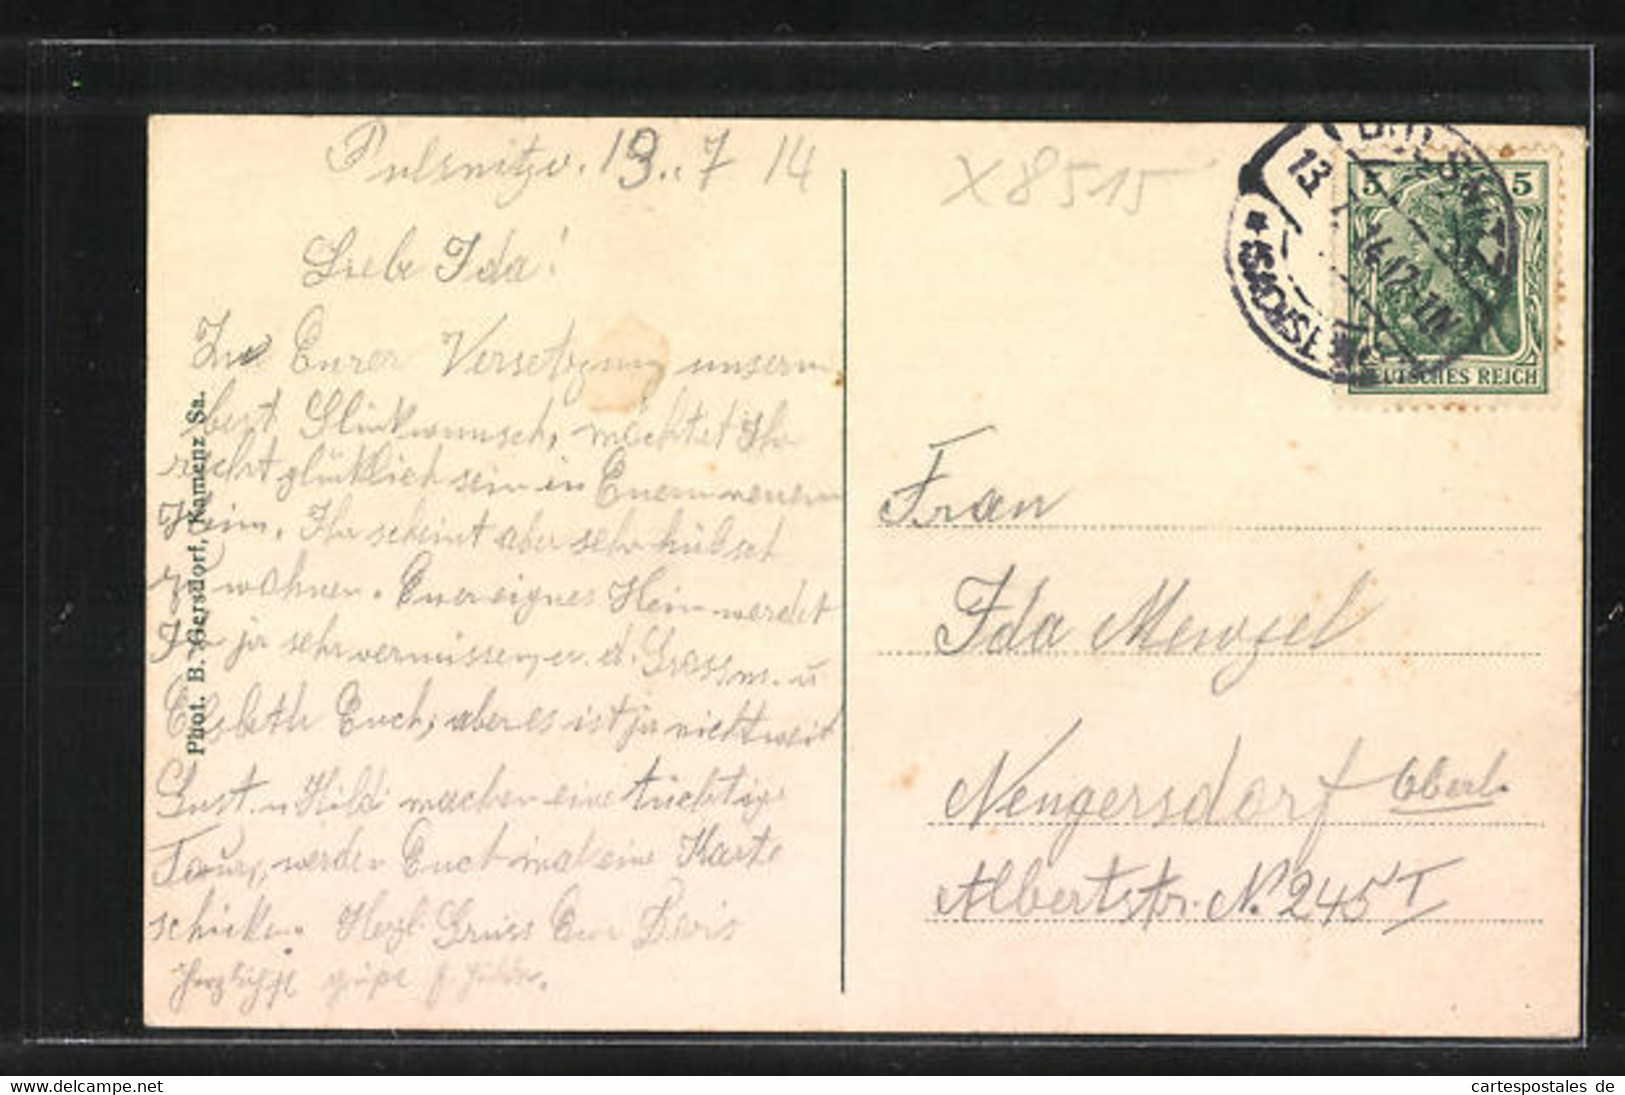 Pulsnitz. 13. 7 14
Liebe Ida!
Zu Eurer Versetzung unsern
best. Glückwunsch, möchtet Ihr
recht glücklich sein in Euern neuem
Heim. Ihr scheint aber sehr hübsch
zu wohnen. Euer eignes Heim werdet
Ihr ja sehr vermissen, u. d. Grossm. u
Elsbeth Euch, aber es ist ja nicht weit
Gust. u Hild. machen eine tüchtige
Tour, werden Euch mal eine Karte
schicken. Herzl. Gruss Eure Doris
Herzlichst grüßt
Phot. B. Gersdorf, Kamenz Sa.
X 8515
PULSNITZ
13. 7. 14. 12-1 N
* (SACHSEN)
5 5
DEUTSCHES REICH
Frau
Ida Menzel
Neugersdorf Oberl.
Albertstr. N. 245 I
www.delcampe.net
cartespostales de